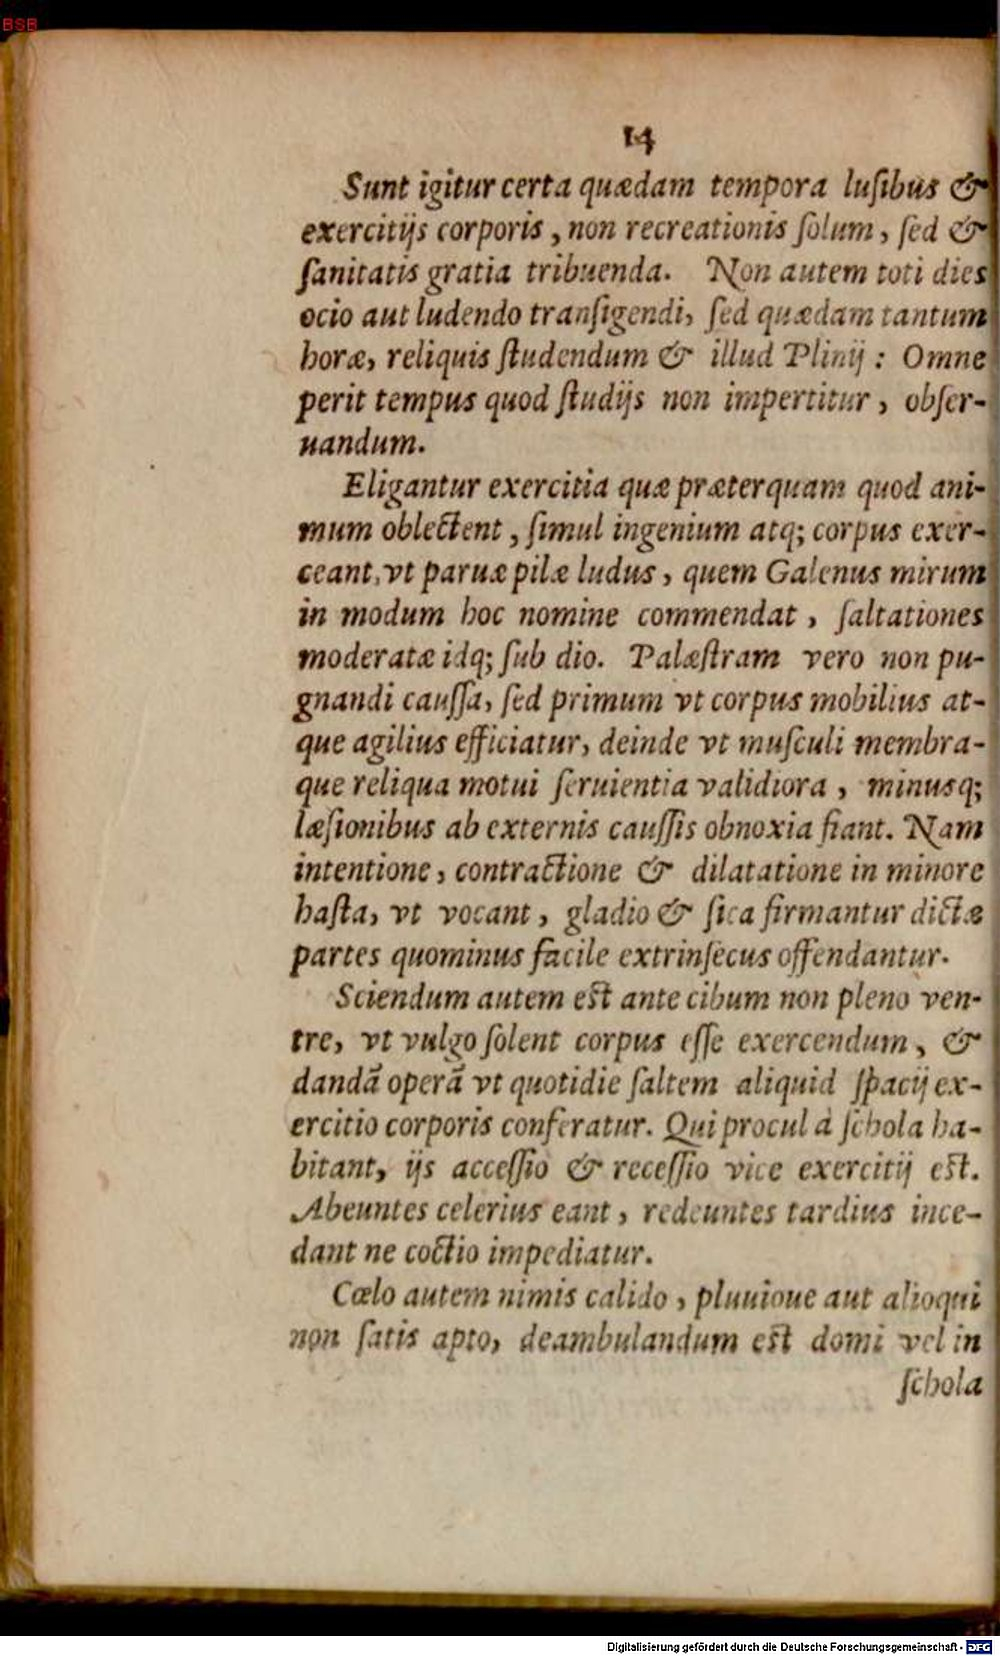 BSB
14
Sunt igitur certa quædam tempora luſibus &
exercitijs corporis, non recreationis ſolum, ſed &
ſanitatis gratia tribuenda. Non autem toti dies
ocio aut ludendo tranſigendi, ſed quædam tantum
horæ, reliquis ſtudendum & illud Plinij : Omne
perit tempus quod ſtudijs non impertitur, obſer-
uandum.
Eligantur exercitia quæ præterquam quod ani-
mum oblectent, ſimul ingenium atq; corpus exer-
ceant, vt paruæ pilæ ludus, quem Galenus mirum
in modum hoc nomine commendat, ſaltationes
moderatæ idq; ſub dio. Palæſtram vero non pu-
gnandi cauſſa, ſed primum vt corpus mobilius at-
que agilius efficiatur, deinde vt muſculi membra-
que reliqua motui ſeruientia validiora, minusq;
læſionibus ab externis cauſſis obnoxia fiant. Nam
intentione, contractione & dilatatione in minore
haſta, vt vocant, gladio & ſica firmantur dictæ
partes quominus facile extrinſecus offendantur.
Sciendum autem eſt ante cibum non pleno ven-
tre, vt vulgo ſolent corpus eſſe exercendum, &
dandã operã vt quotidie ſaltem aliquid ſpacij ex-
ercitio corporis conferatur. Qui procul à ſchola ha-
bitant, ijs acceſſio & receſſio vice exercitij eſt.
Abeuntes celerius eant, redeuntes tardius ince-
dant ne coctio impediatur.
Cœlo autem nimis calido, pluuioue aut alioqui
non ſatis apto, deambulandum eſt domi vel in
ſchola
Digitalisierung gefördert durch die Deutsche Forschungsgemeinschaft - DFG